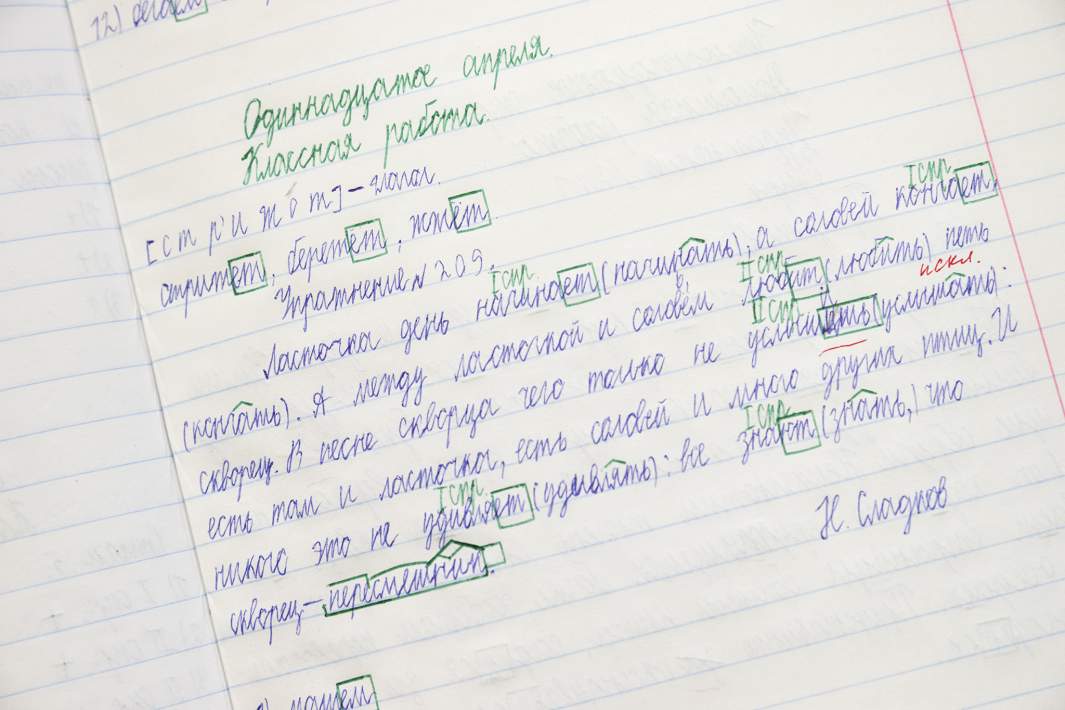 12) бегаем
Одиннадцатое апреля.
Классная работа.
[с т р' и ж о т] – глагол.
стрижет, бережет, жжёт.
Упражнение № 209.
I спр. I спр.
Ласточка день начинает (начинать), а соловей кончает,
II спр.
(кончать). А между ласточкой и соловьём любит (любить) петь
II спр. искл.
скворец. В песне скворца чего только не услышишь (услышать):
есть там и ласточка, есть соловей и много других птиц. И
I спр. I спр.
никого это не удивляет (удивлять): все знают (знать,) что
скворец – пересмешник.
Н. Сладков